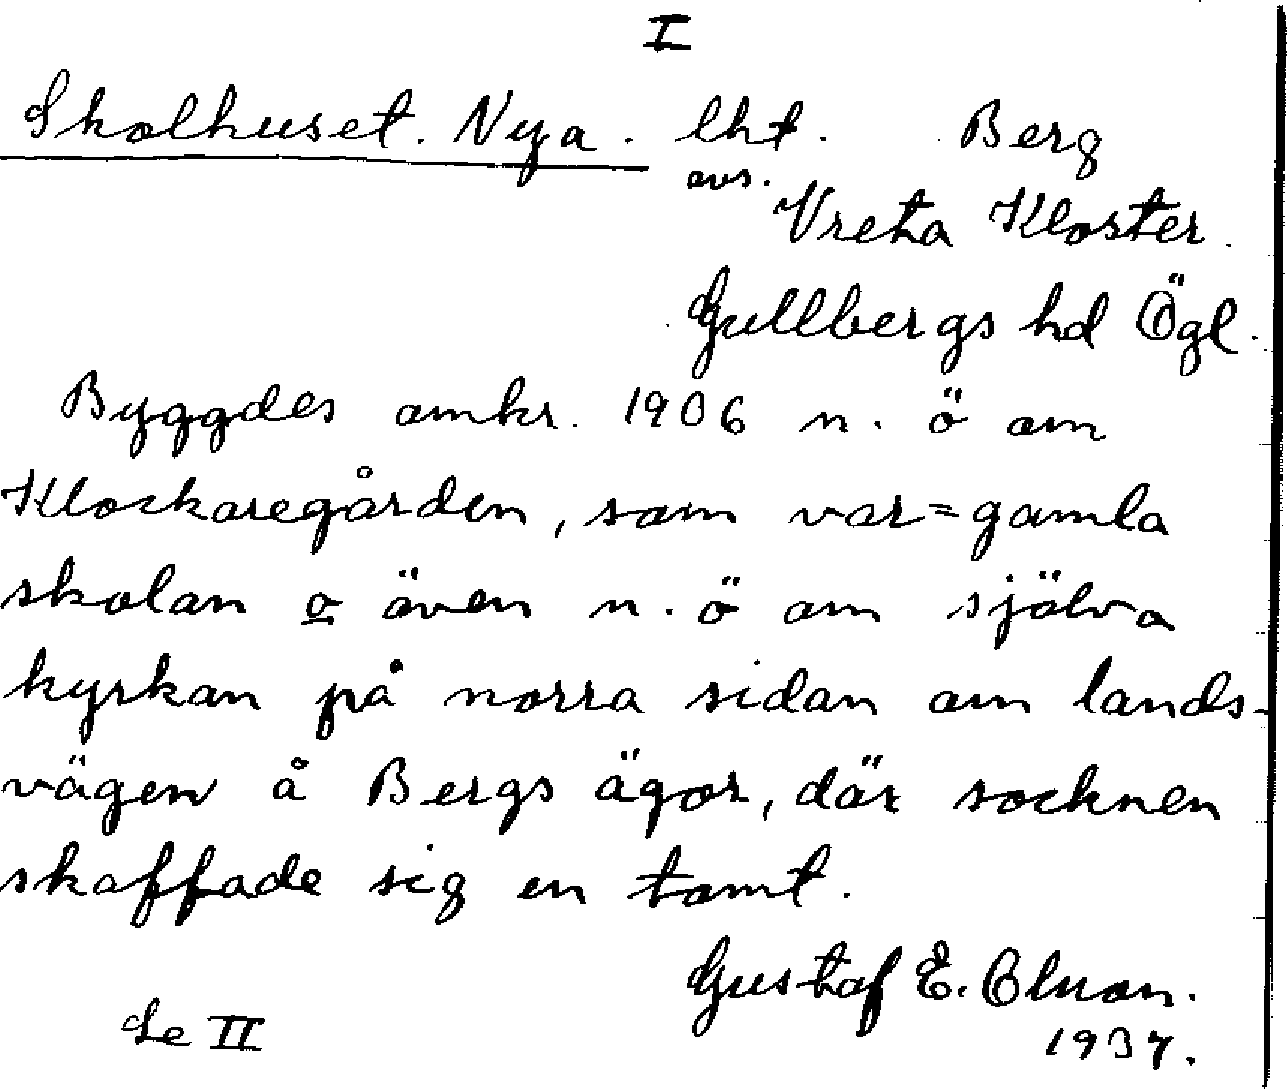 I
Skolhuset. Nya. lht. Berg
avs.
Vreta Kloster.
Gullbergs hd Ögl.
Byggdes omkr. 1906 n. ö om
Klockaregården, som var=gamla
skolan o även n. ö om själva
kyrkan på norra sidan om lands-
vägen å Bergs ägor, där socknen
skaffade sig en tomt.
Gustaf E.
1937.
Se II